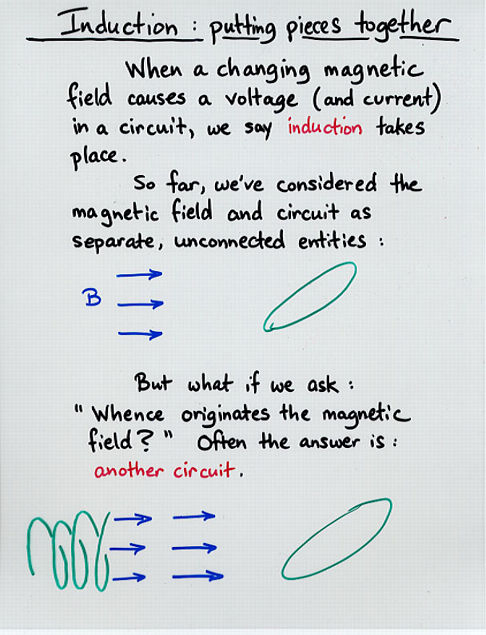 Induction : putting pieces together
When a changing magnetic
field causes a voltage (and current)
in a circuit, we say induction takes
place.
So far, we've considered the
magnetic field and circuit as
separate, unconnected entities :
B
But what if we ask :
"Whence originates the magnetic
field?" Often the answer is :
another circuit.